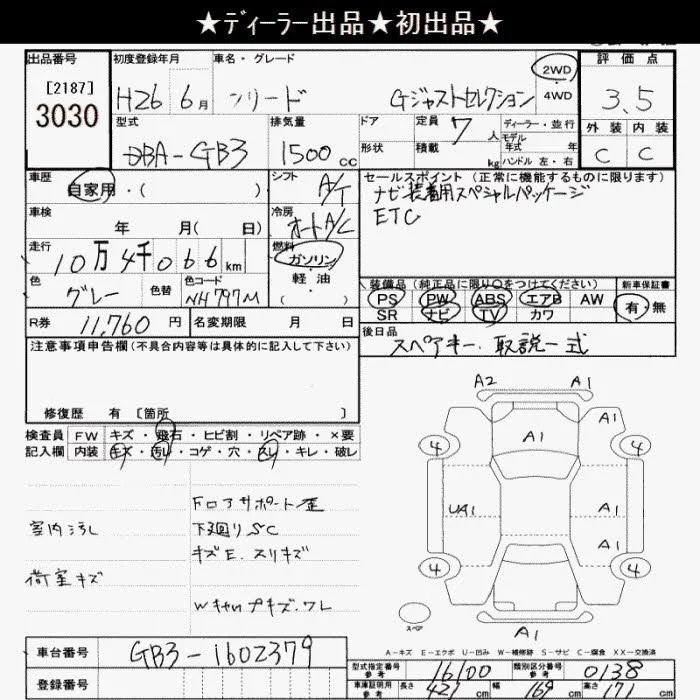 ★ディーラー出品★初出品★
出品番号 初度登録年月 車名・グレード 評価点
[2187]
3030
H26 6月 フリード Gジャストセレクション 2WD・4WD 3.5
型式 排気量 ドア 定員 7人 ディーラー・並行 外装 内装
DBA-GB3 1500cc 形状 積載 kg モデル年式 年 ハンドル 左・右 C C
車歴 自家用・( ) シフト A/T セールスポイント (正常に機能するものに限ります)
車検 年 月( 日) 冷房 オートA/C ナビ装着用スペシャルパッケージ
ETC
走行 10万4千066km 燃料 ガソリン・軽油・( )
色 グレー 色替 色コード NH797M
装備品 (純正品に限り○をつけてください) 新車保証書
PS PW ABS エアB AW 有・無
SR ナビ TV カワ
R券 11,760円 名変期限 月 日
後日品 スペアキー、取説一式
注意事項申告欄(不具合内容等は具体的に記入して下さい)
修復歴 有 [箇所 ]
検査員 FW キズ・飛石・ヒビ割・リペア跡・×要
記入欄 内装 キズ・汚レ・コゲ・穴・スレ・キレ・破レ
フロアサポート歪
室内汚し 下廻りSC
キズE、スリキズ
荷室キズ
Wキャップキズ、ワレ
A2 A1
A1 A1
4 4
UA1 A1
A1
4 4
スペア A1
A-キズ E-エクボ U-凹み W-補修跡 S-サビ C-腐食 XX-交換済
車台番号 GB3-1602379
登録番号
型式指定番号 参考 16100 類別区分番号 参考 0138
車庫証明用 参考 長さ 421cm 幅 169cm 高さ 171cm